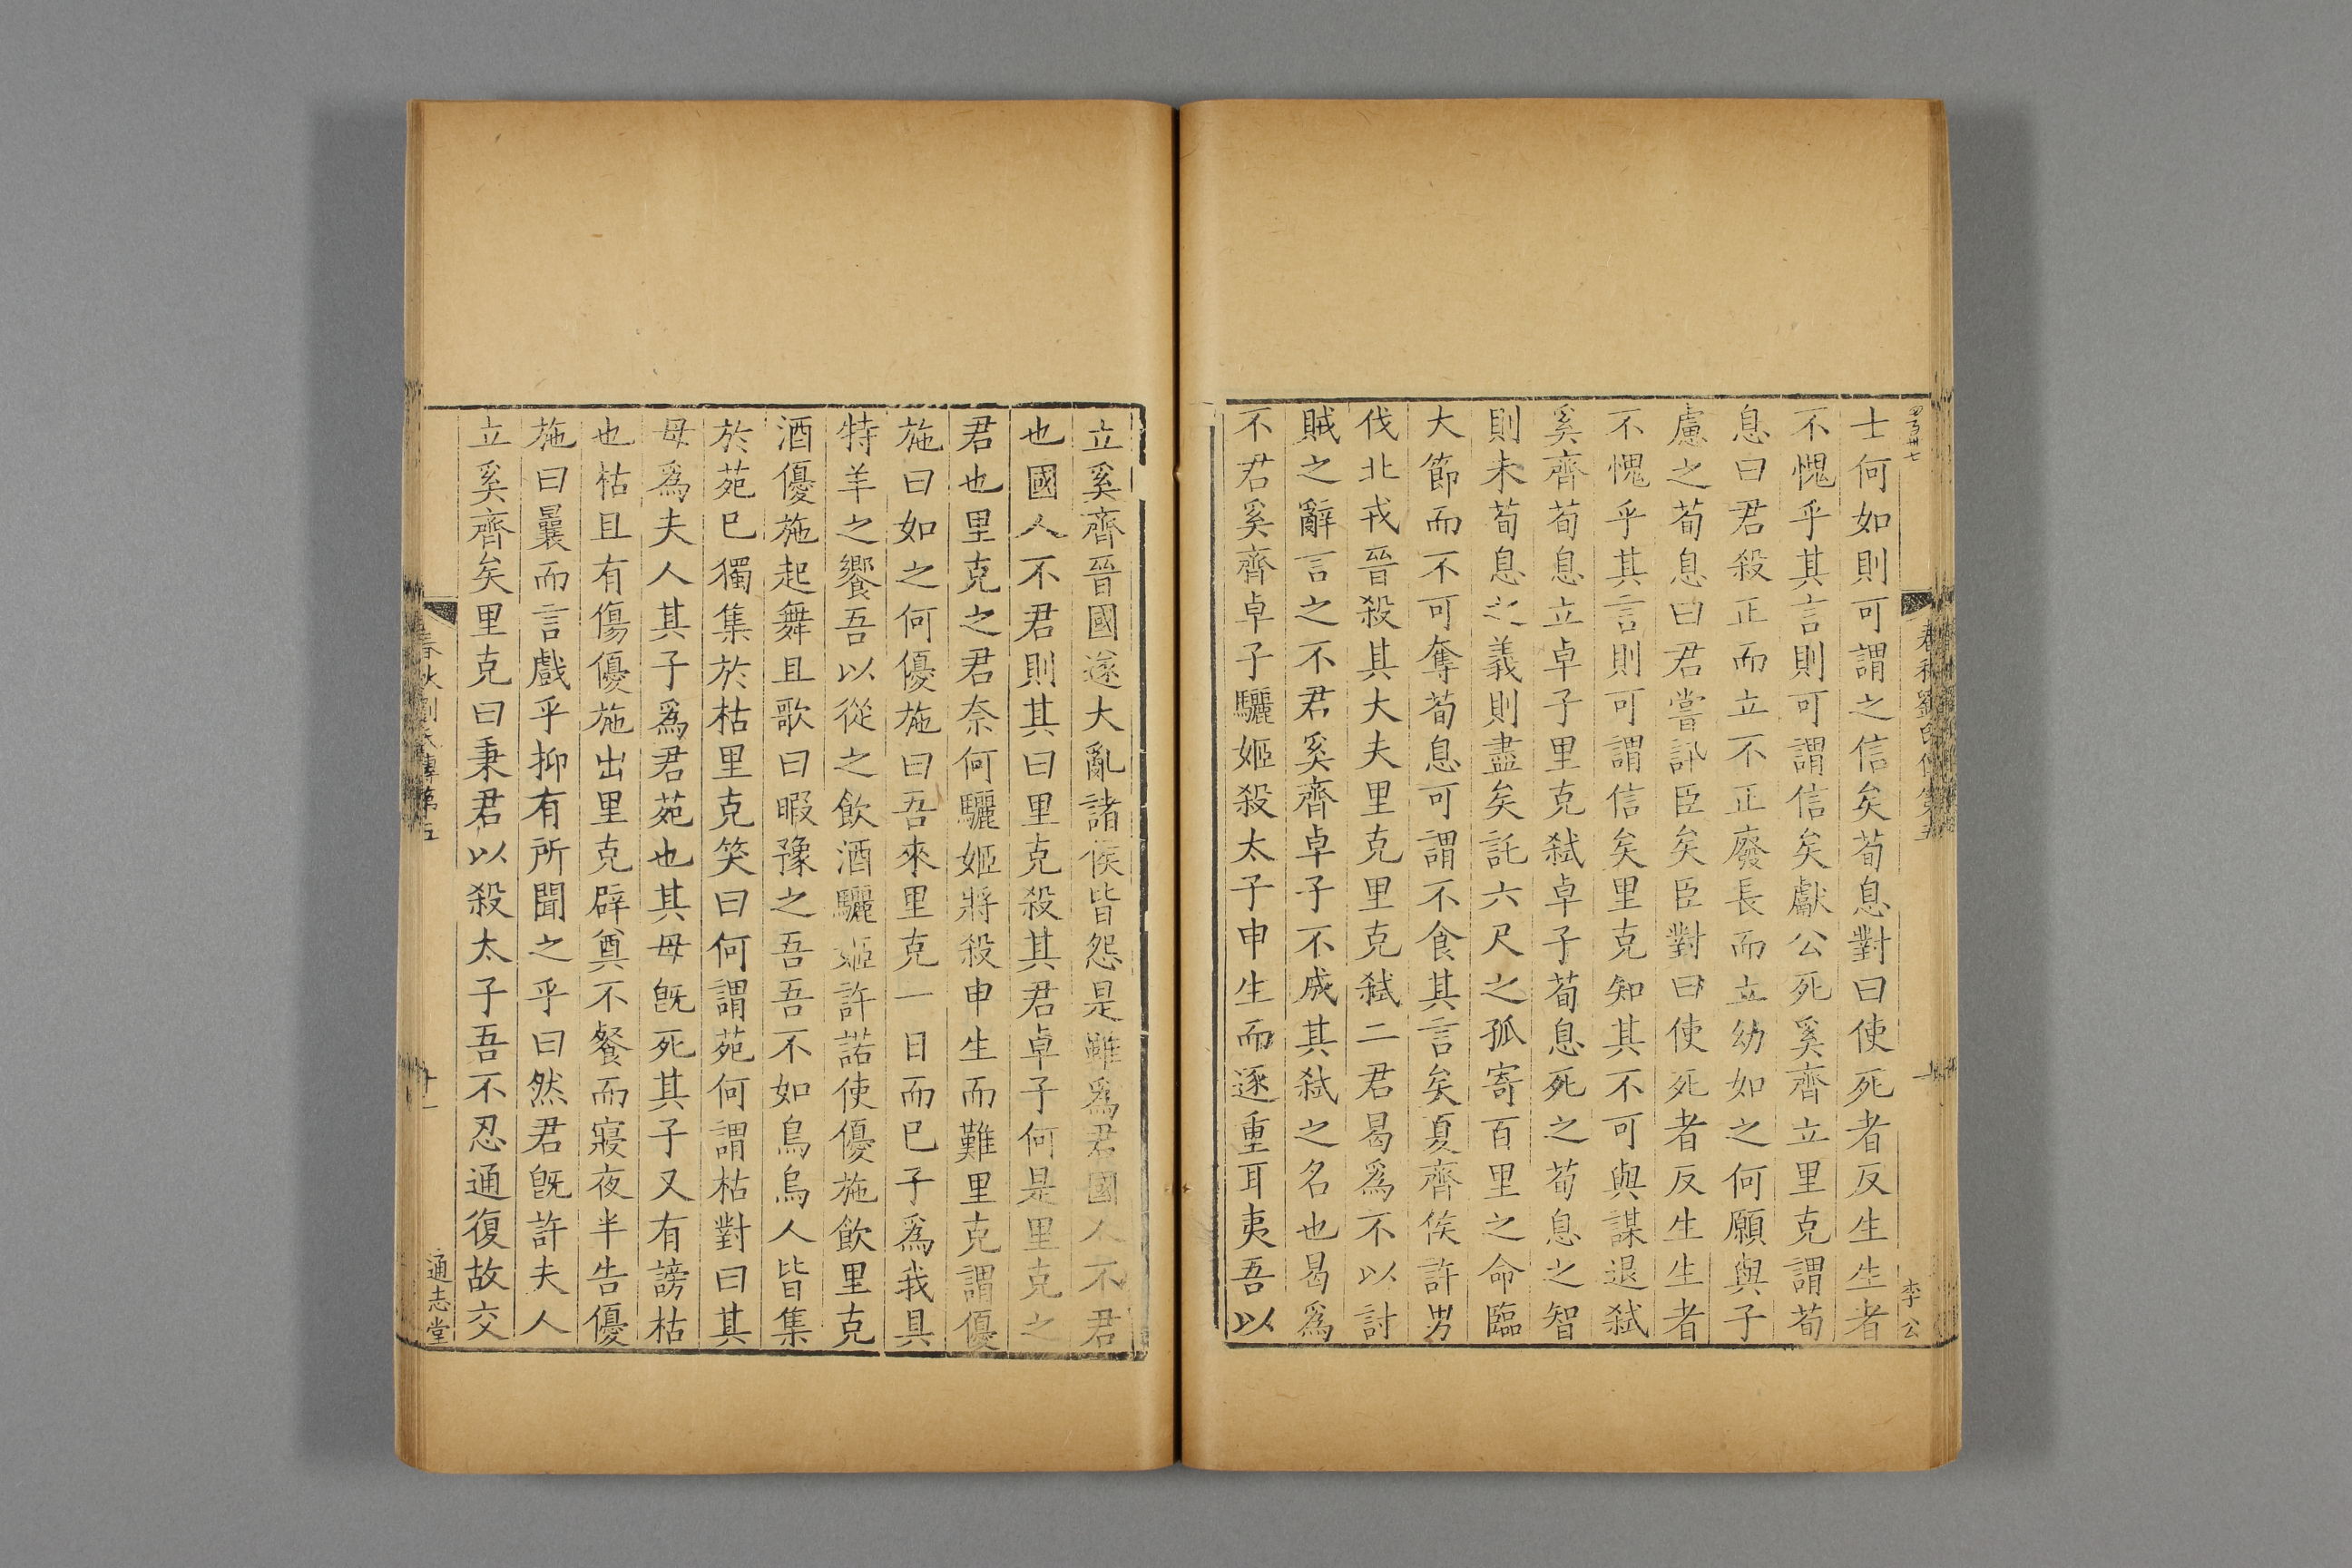 士何如則可謂之信矣荀息對曰使死者反生生者
不愧乎其言則可謂信矣獻公死奚齊立里克謂荀
息曰君殺正而立不正廢長而立幼如之何願與子
慮之荀息曰君嘗訊臣矣臣對曰使死者反生生者
不愧乎其言則可謂信矣里克知其不可與謀退弑
奚齊荀息立卓子里克弑卓子荀息死之荀息之智
則未荀息之義則盡矣託六尺之孤寄百里之命臨
大節而不可奪荀息可謂不食其言矣夏齊侯許男
伐北戎晉殺其大夫里克里克弑二君曷爲不以討
賊之辭言之不君奚齊卓子不成其弑之名也曷爲
不君奚齊卓子驪姬殺太子申生而逐重耳夷吾以
李公
立奚齊晉國遂大亂諸侯皆怨是雖爲君國人不君
也國人不君則其曰里克殺其君卓子何是里克之
君也里克之君奈何驪姬將殺申生而難里克謂優
施曰如之何優施曰吾來里克一日而已子爲我具
特羊之饗吾以從之飲酒驪姬許諾使優施飲里克
酒優施起舞且歌曰暇豫之吾吾不如烏烏人皆集
於苑已獨集於枯里克笑曰何謂苑何謂枯對曰其
母爲夫人其子爲君苑也其母旣死其子又有謗枯
也枯且有傷優施出里克辟奠不餐而寢夜半告優
施曰曩而言戲乎抑有所聞之乎曰然君旣許夫人
立奚齊矣里克曰秉君以殺太子吾不忍通復故交
春秋劉氏傳第五
十一
通志堂